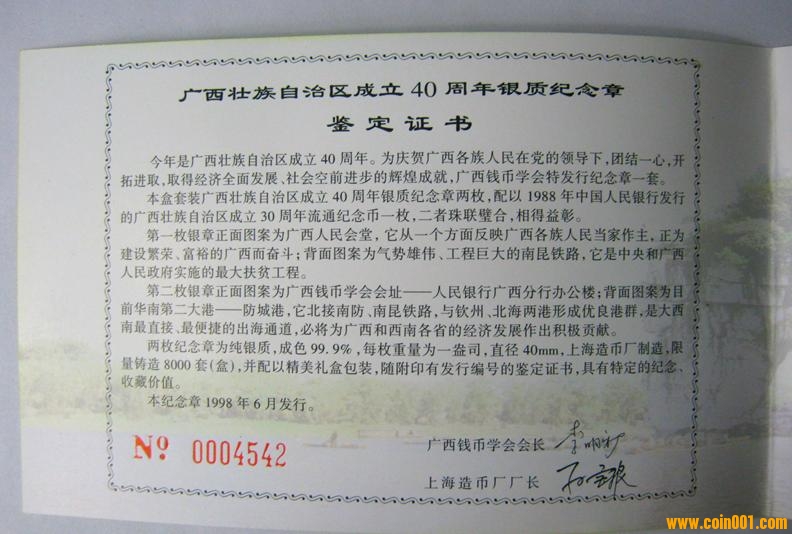 广西壮族自治区成立 40 周年银质纪念章
鉴定证书
今年是广西壮族自治区成立 40 周年。为庆贺广西各族人民在党的领导下,团结一心,开
拓进取,取得经济全面发展、社会空前进步的辉煌成就,广西钱币学会特发行纪念章一套。
本盒套装广西壮族自治区成立 40 周年银质纪念章两枚,配以 1988 年中国人民银行发行
的广西壮族自治区成立 30 周年流通纪念币一枚,二者珠联璧合,相得益彰。
第一枚银章正面图案为广西人民会堂,它从一个方面反映广西各族人民当家作主,正为
建设繁荣、富裕的广西而奋斗;背面图案为气势雄伟、工程巨大的南昆铁路,它是中央和广西
人民政府实施的最大扶贫工程。
第二枚银章正面图案为广西钱币学会会址——人民银行广西分行办公楼;背面图案为目
前华南第二大港——防城港,它北接南防、南昆铁路,与钦州、北海两港形成优良港群,是大西
南最直接、最便捷的出海通道,必将为广西和西南各省的经济发展作出积极贡献。
两枚纪念章为纯银质,成色 99.9%,每枚重量为一盎司,直径 40mm,上海造币厂制造,限
量铸造 8000 套(盒),并配以精美礼盒包装,随附印有发行编号的鉴定证书,具有特定的纪念、
收藏价值。
本纪念章 1998 年 6 月发行。
№ 0004542
广西钱币学会会长
上海造币厂厂长
www.coin001.com